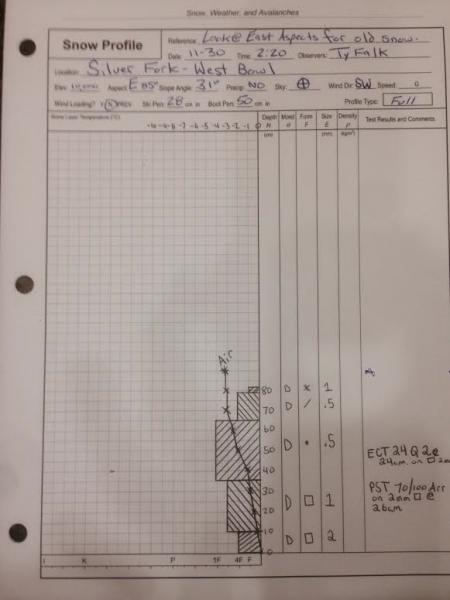 Snow, Weather, and Avalanches
Snow Profile
Reference: Look@ East Aspects for old snow.
Date: 11-30 Time: 2:20 Observers: Ty Falk
Location: Silver Fork - West Bowl
Elev: Aspect: E 85° Slope Angle: 31° Precip: NO Sky: ⊕ Wind Dir: SW Speed: 0
Wind Loading? Y N PREV Ski Pen: 28 cm in Boot Pen: 50 cm in Profile Type: Full
Snow Layer Temperature (°C) Depth Moist Form Size Density Test Results and Comments
H θ F E ρ
(cm) (mm) (kg/m³)
Air
80 D × 1
70 D / .5
60
50 D • .5
40
30
20 D □ 1
10
D □ 2
0
ECT 24 Q 2@
24cm. on □
PST 70/100 Arr
on 2mm □ @
26cm
I K P 1F 4F F